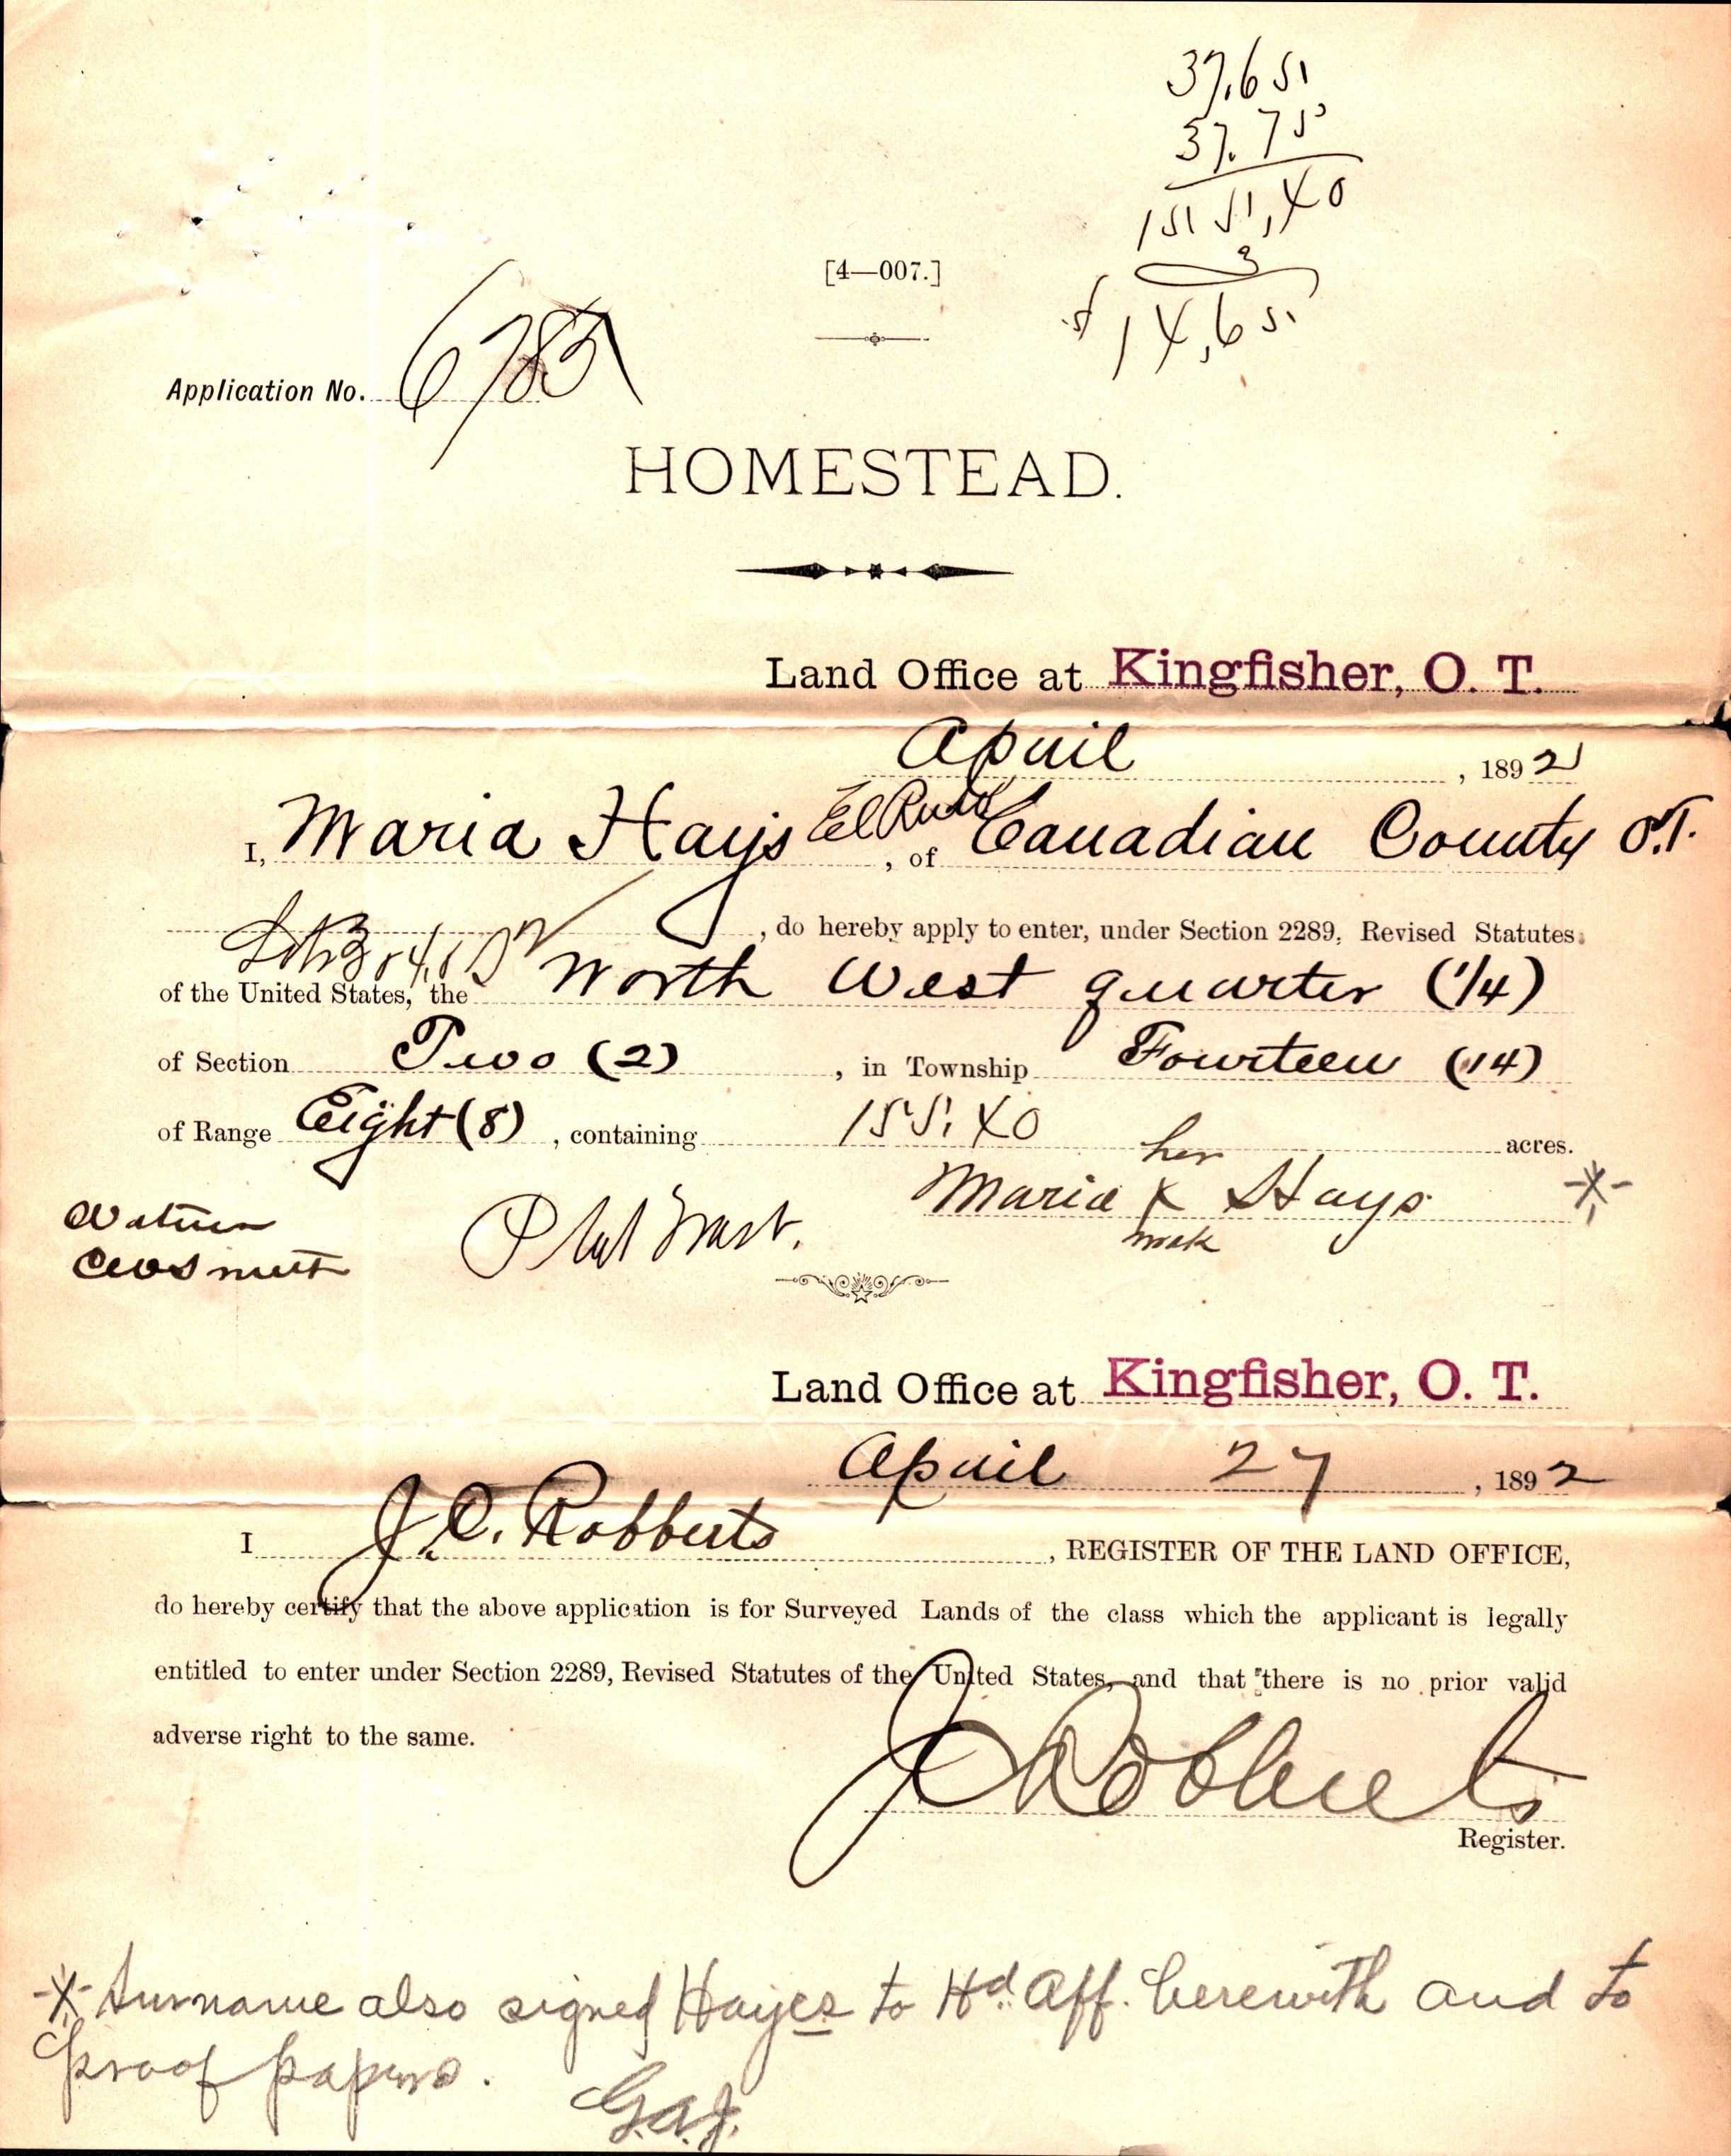 37.65
37.75
155.40
3
14.65
[4—007.]
Application No. 6785
HOMESTEAD.
Land Office at Kingfisher, O. T.
April , 1892
I, Maria Hays El Reno , of Canadian County O.T.
Lots 3 & 4, & S/2
, do hereby apply to enter, under Section 2289, Revised Statutes
of the United States, the North West quarter (1/4)
of Section Two (2) , in Township Fourteen (14)
of Range Eight (8) , containing 155.40 acres.
her
Maria X Hays *
mark
Plat
Land Office at Kingfisher, O. T.
April 27 , 1892
I J. C. Robberts , REGISTER OF THE LAND OFFICE,
do hereby certify that the above application is for Surveyed Lands of the class which the applicant is legally
entitled to enter under Section 2289, Revised Statutes of the United States, and that there is no prior valid
adverse right to the same.
J C Robberts
Register.
* Surname also signed Hayes to Hd. Aff. herewith and to
proof papers.
G.A.J.